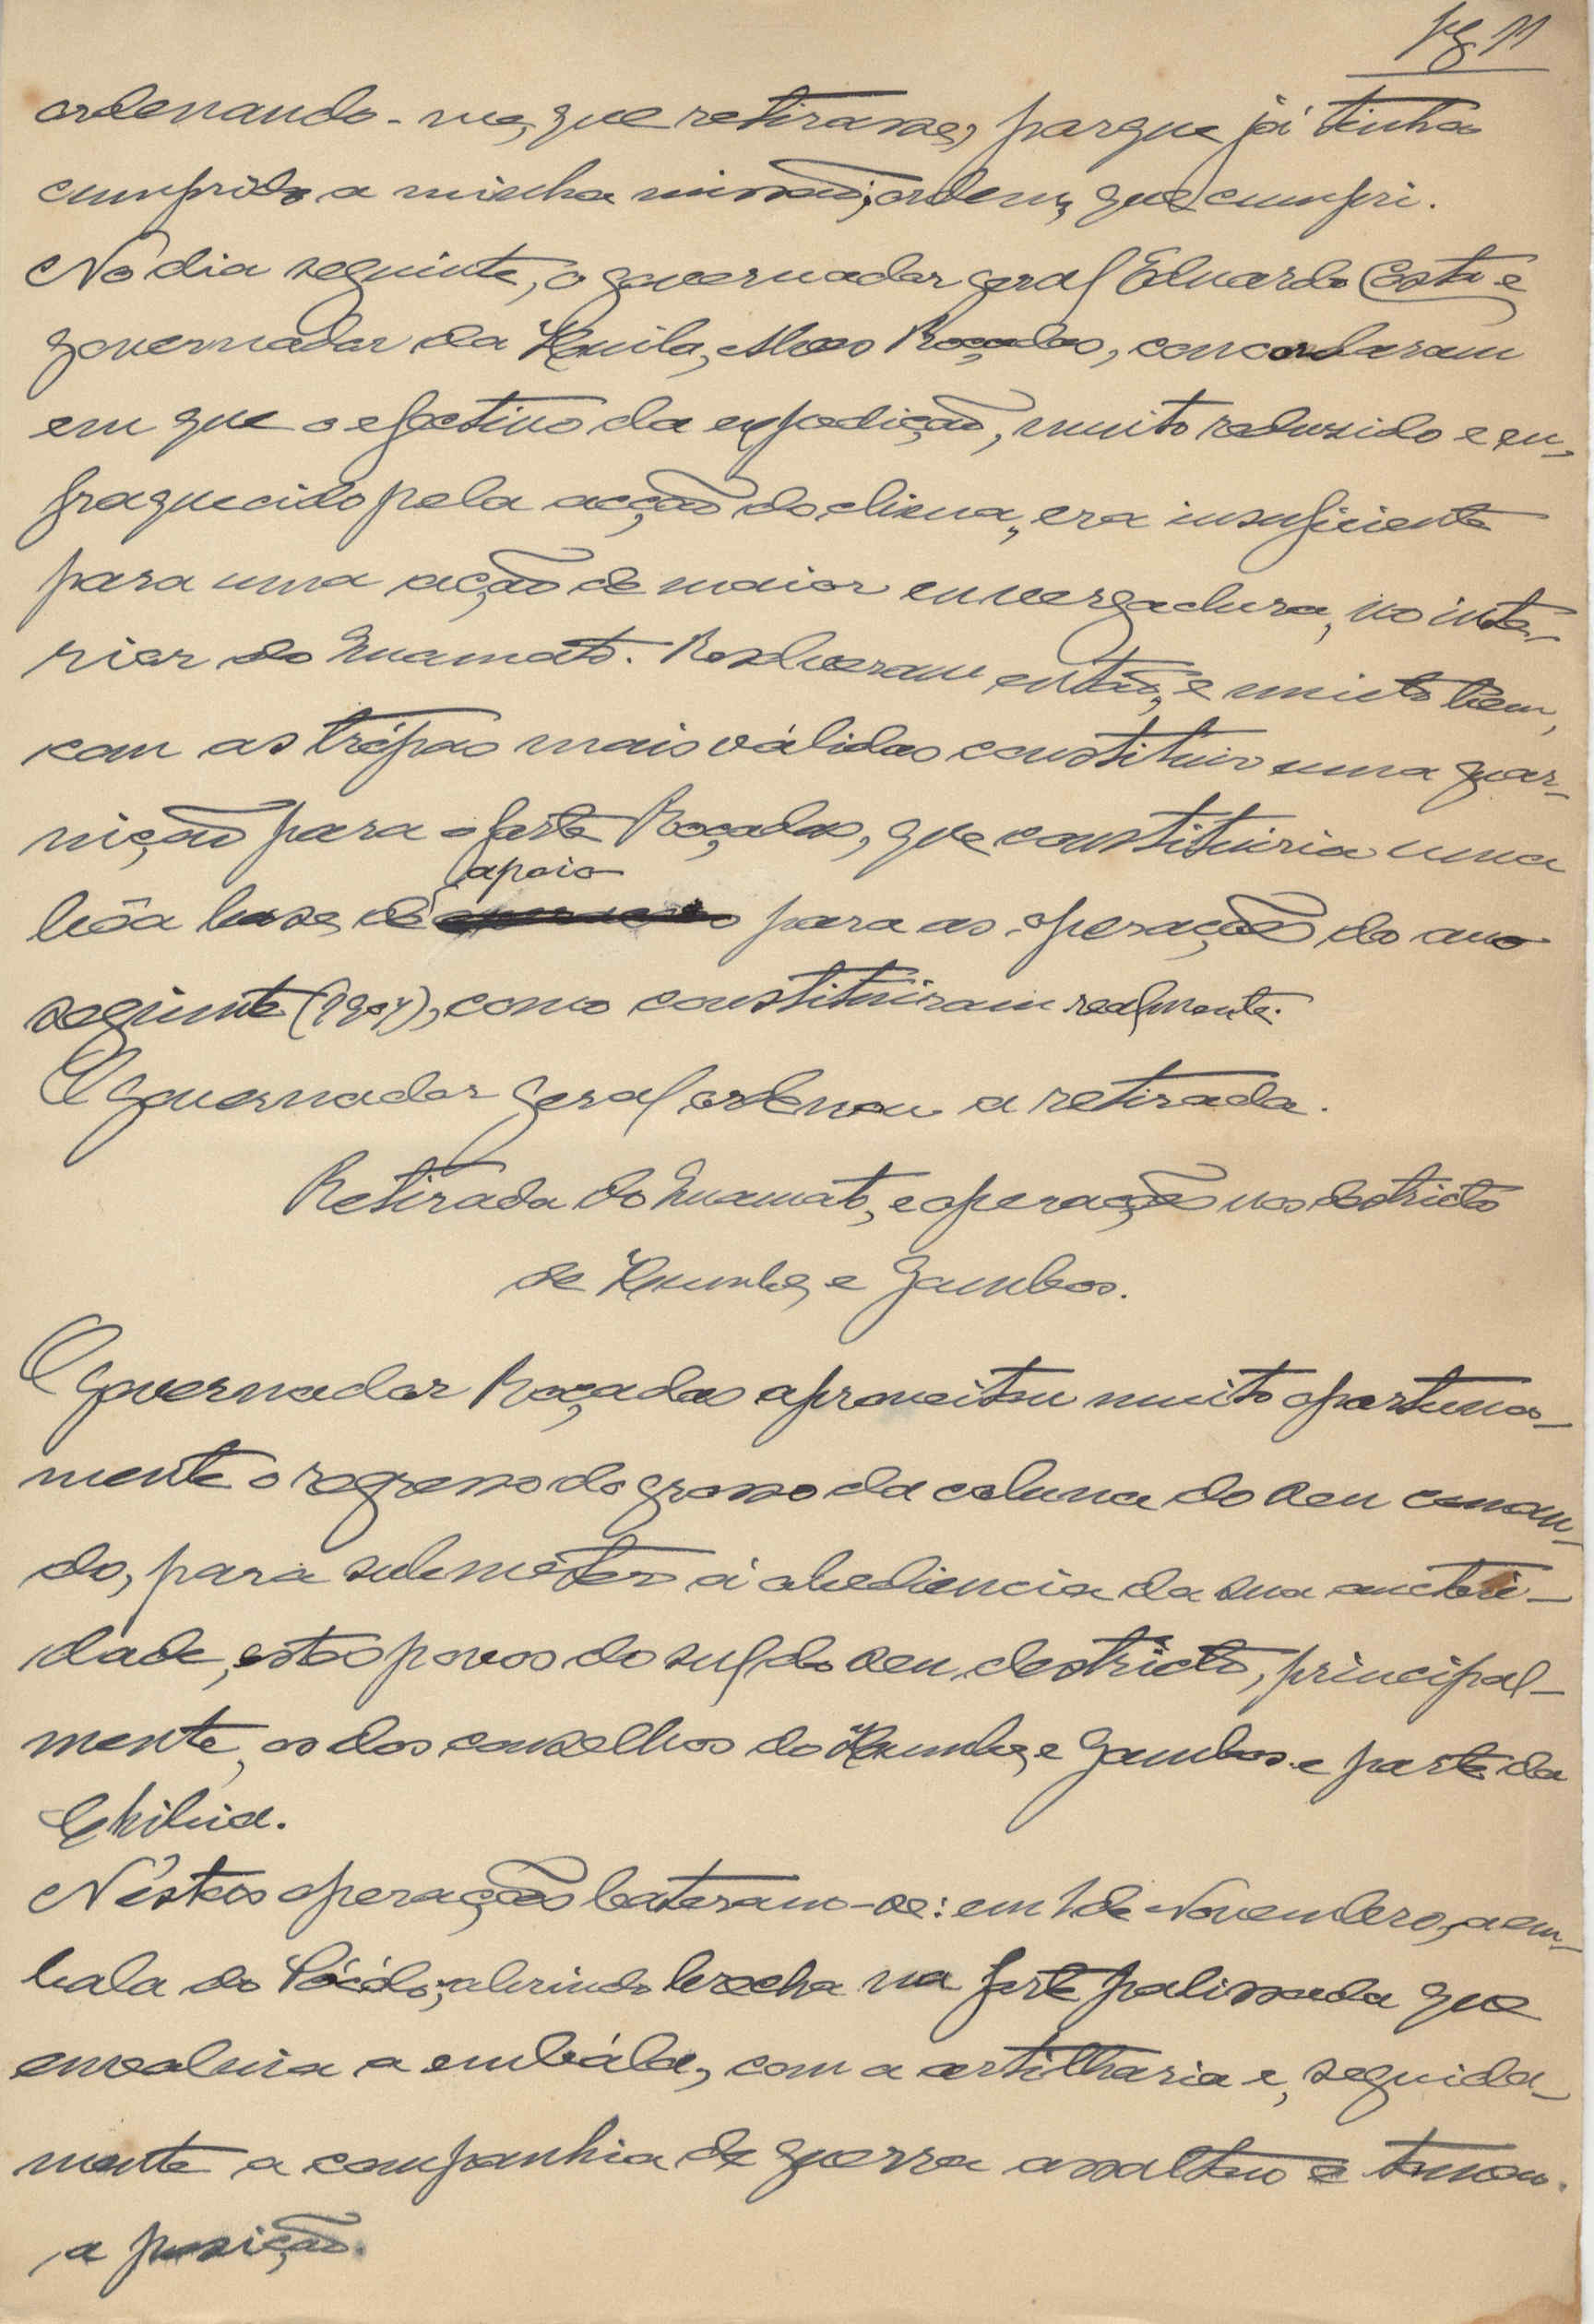 pg 11
ordenando-me, que retirasse, porque já tinha
cumprido a minha missão; ordem, que cumpri.
No dia seguinte, o governador geral Eduardo Costa e
governador da Huila, Alves Roçadas, concordaram
em que o efectivo da expedição, muito reduzido e en-
fraquecido pela acção do clima, era insuficiente
para uma acção de maior envergadura, no inte-
rior do Cuamato. Resolveram então, e muito bem,
com as trópas mais válidas constituir uma guar-
nição para o forte Roçadas, que constituiria uma
apoio
bôa base, de para as operações do ano
seguinte (1907), como constituiram realmente.
O governador geral ordenou a retirada.
Retirada do Cuamato, e operações nos destrictos
de Humbe, e Gambos.
O governador Roçadas aproveitou muito oportuna-
mente o regresso do grosso da coluna do seu coman-
do, para submeter á obediencia da sua auctori-
dade, estes povos do sul do seu destricto, principal-
mente, os dos conselhos do Humbe, e Gambos e parte da
Chibia.
Néstas operações bateram-se: em 1 de Novembro, a em-
bala do abrindo brecha na forte palissada que
envolvia a embála, com a artilharia e, seguida-
mente a companhia de guerra assaltou e tomou.
a posição.